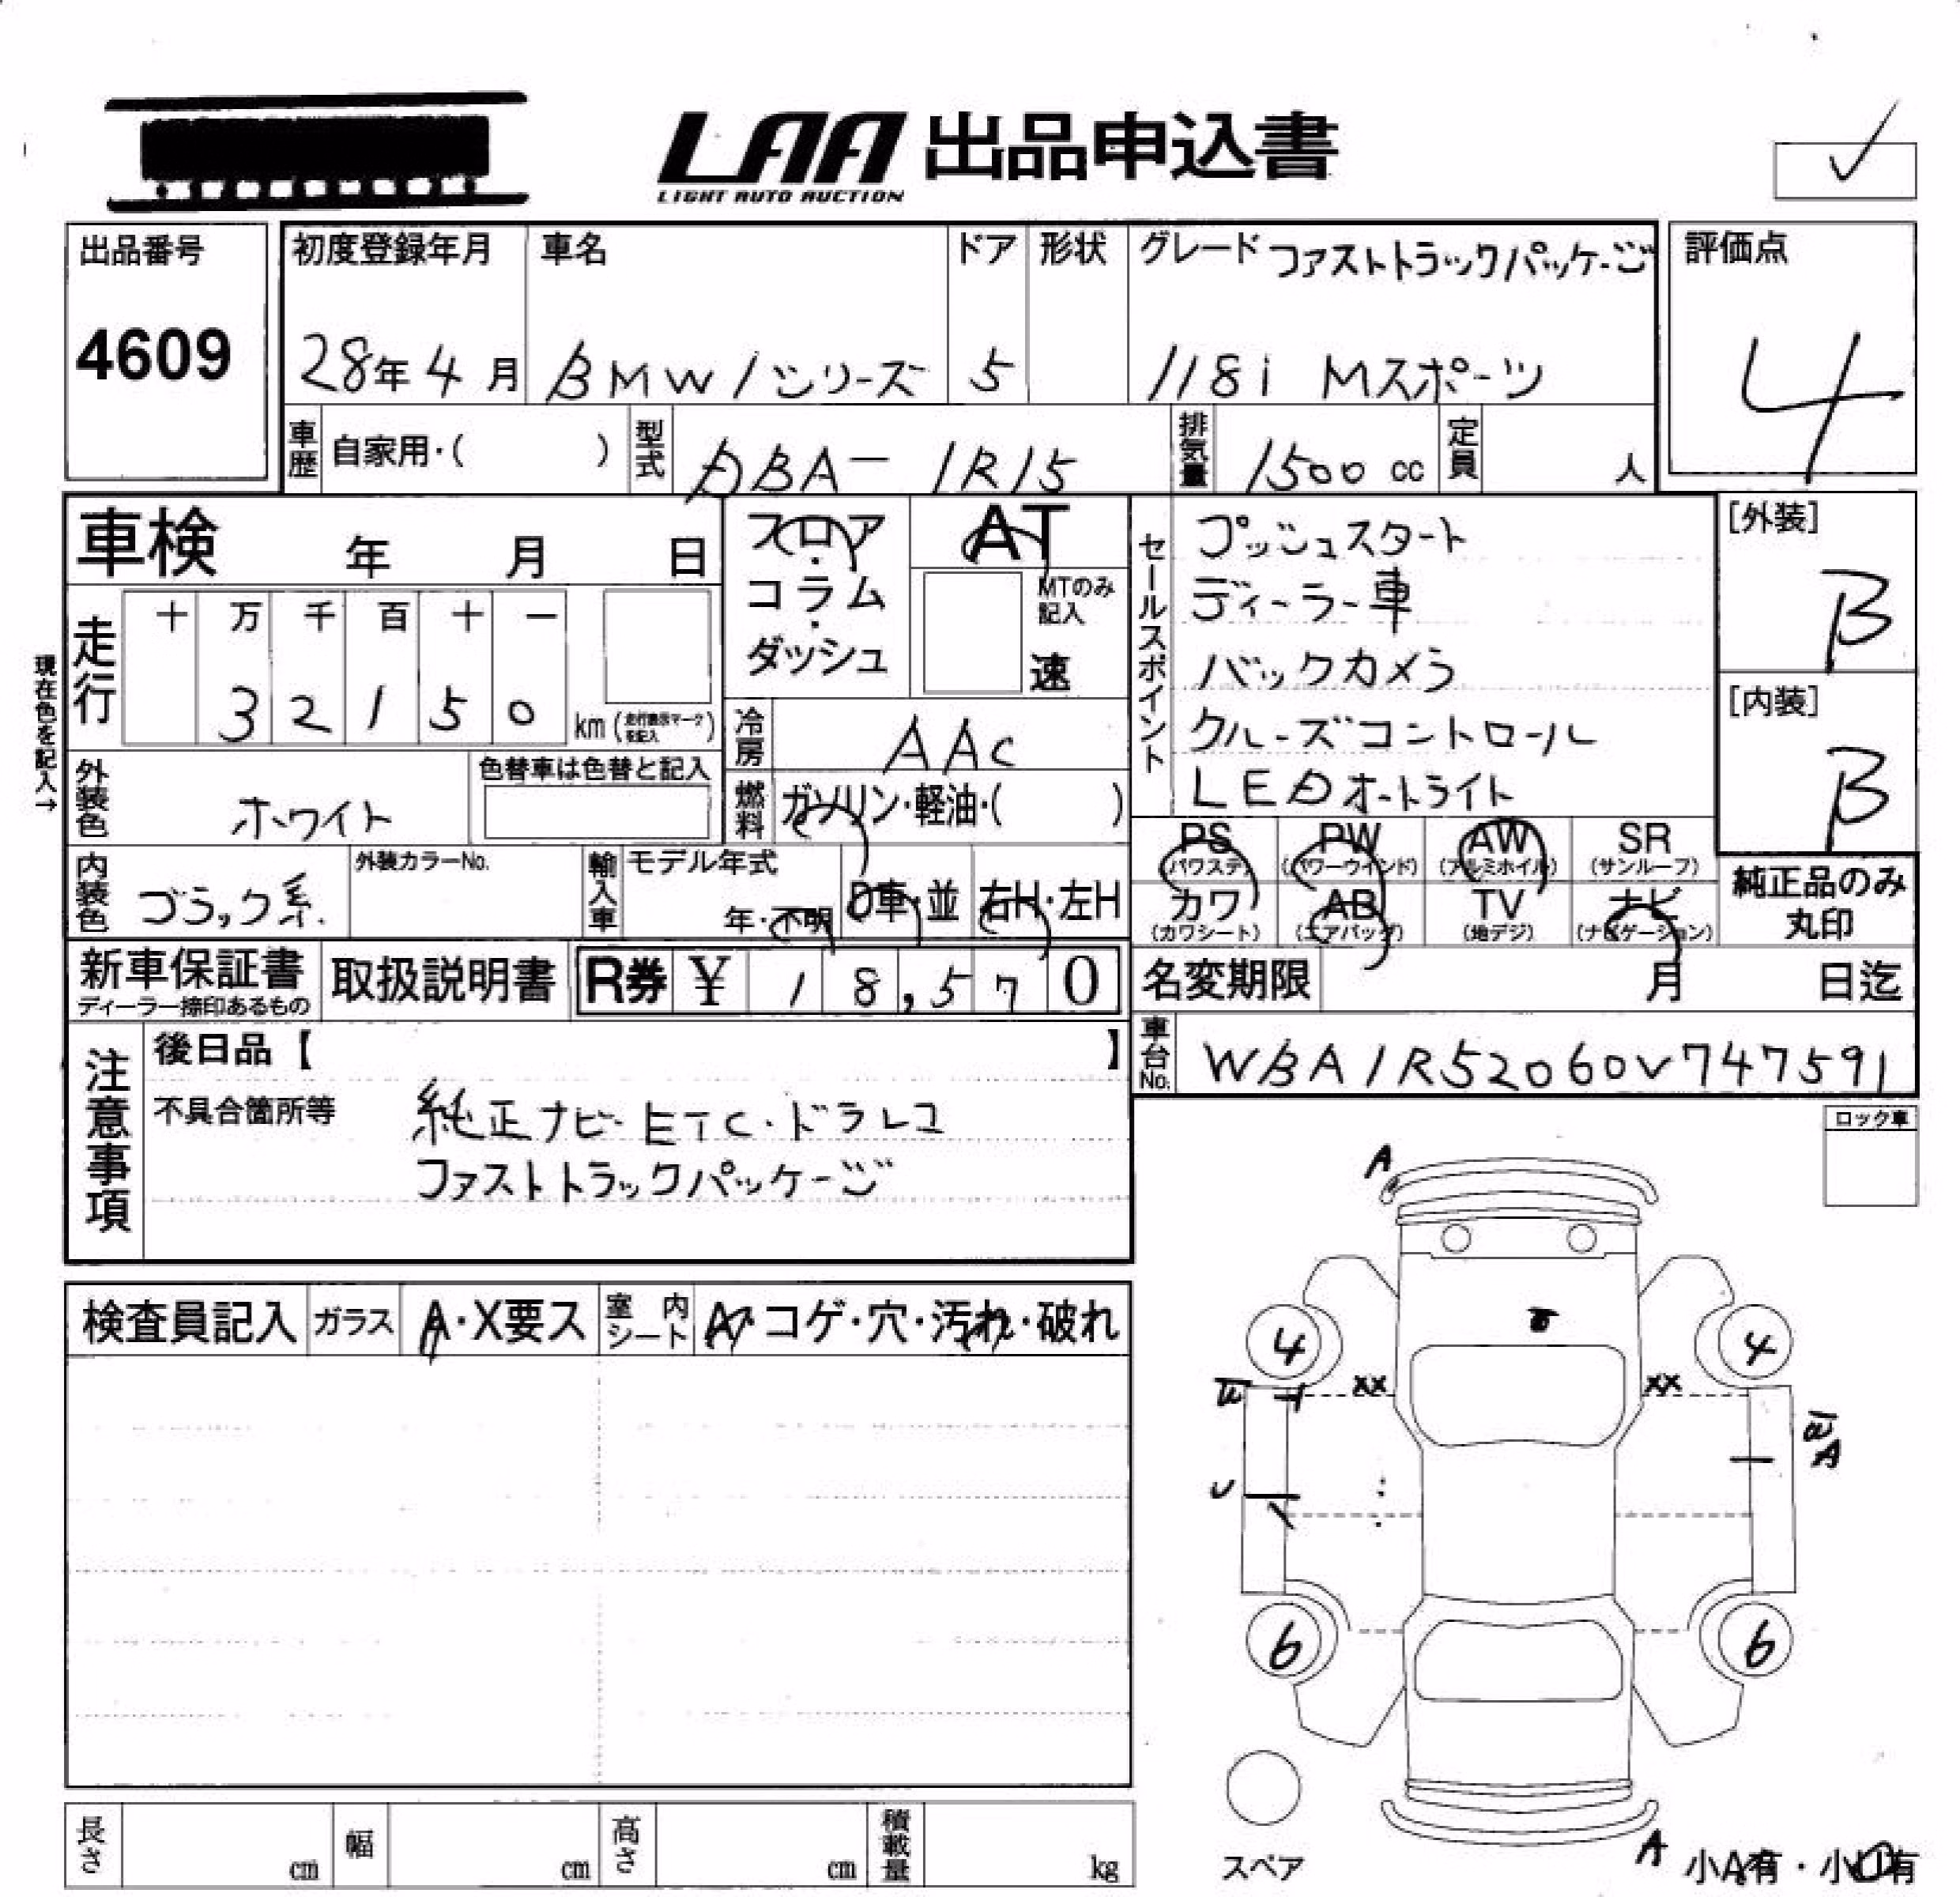 LAA 出品申込書
LIGHT AUTO AUCTION
出品番号 初度登録年月 車名 ドア 形状 グレード ファストトラックパッケージ 評価点
4609 28年 4月 BMW 1シリーズ 5 118i Mスポーツ 4
車歴 自家用・( ) 型式 DBA-1R15 排気量 1500 cc 定員 人
車検 年 月 日
フロア・コラム・ダッシュ
AT
MTのみ記入
速
セールスポイント
プッシュスタート
ディーラー車
バックカメラ
クルーズコントロール
LEDオートライト
[外装]
B
[内装]
B
現在色を記入→
走行 十 万 千 百 十 一
3 2 1 5 0 km
冷房 AAC
外装色 ホワイト 色替車は色替と記入
燃料 ガソリン・軽油・( )
PS PW AW SR
(パワステ) (パワーウインド) (アルミホイル) (サンルーフ)
内装色 ブラック系 外装カラーNo. 輸入車 モデル年式 年・不明 D車・並 右H・左H
カワ AB TV ナビ
(カワシート) (エアバッグ) (地デジ) (ナビゲーション)
純正品のみ丸印
新車保証書 取扱説明書 R券 ¥ 18,570
ディーラー捺印あるもの
名変期限 月 日迄
車台No. WBA1R52060V747591
注意事項
後日品【 】
不具合箇所等 純正ナビ・ETC・ドラレコ
ファストトラックパッケージ
ロック車
検査員記入 ガラス A・X要ス 室内シート A・コゲ・穴・汚れ・破れ
A
4 4
XX XX
A
6 6
スペア
A 小A有・小U有
長さ cm 幅 cm 高さ cm 積載量 kg